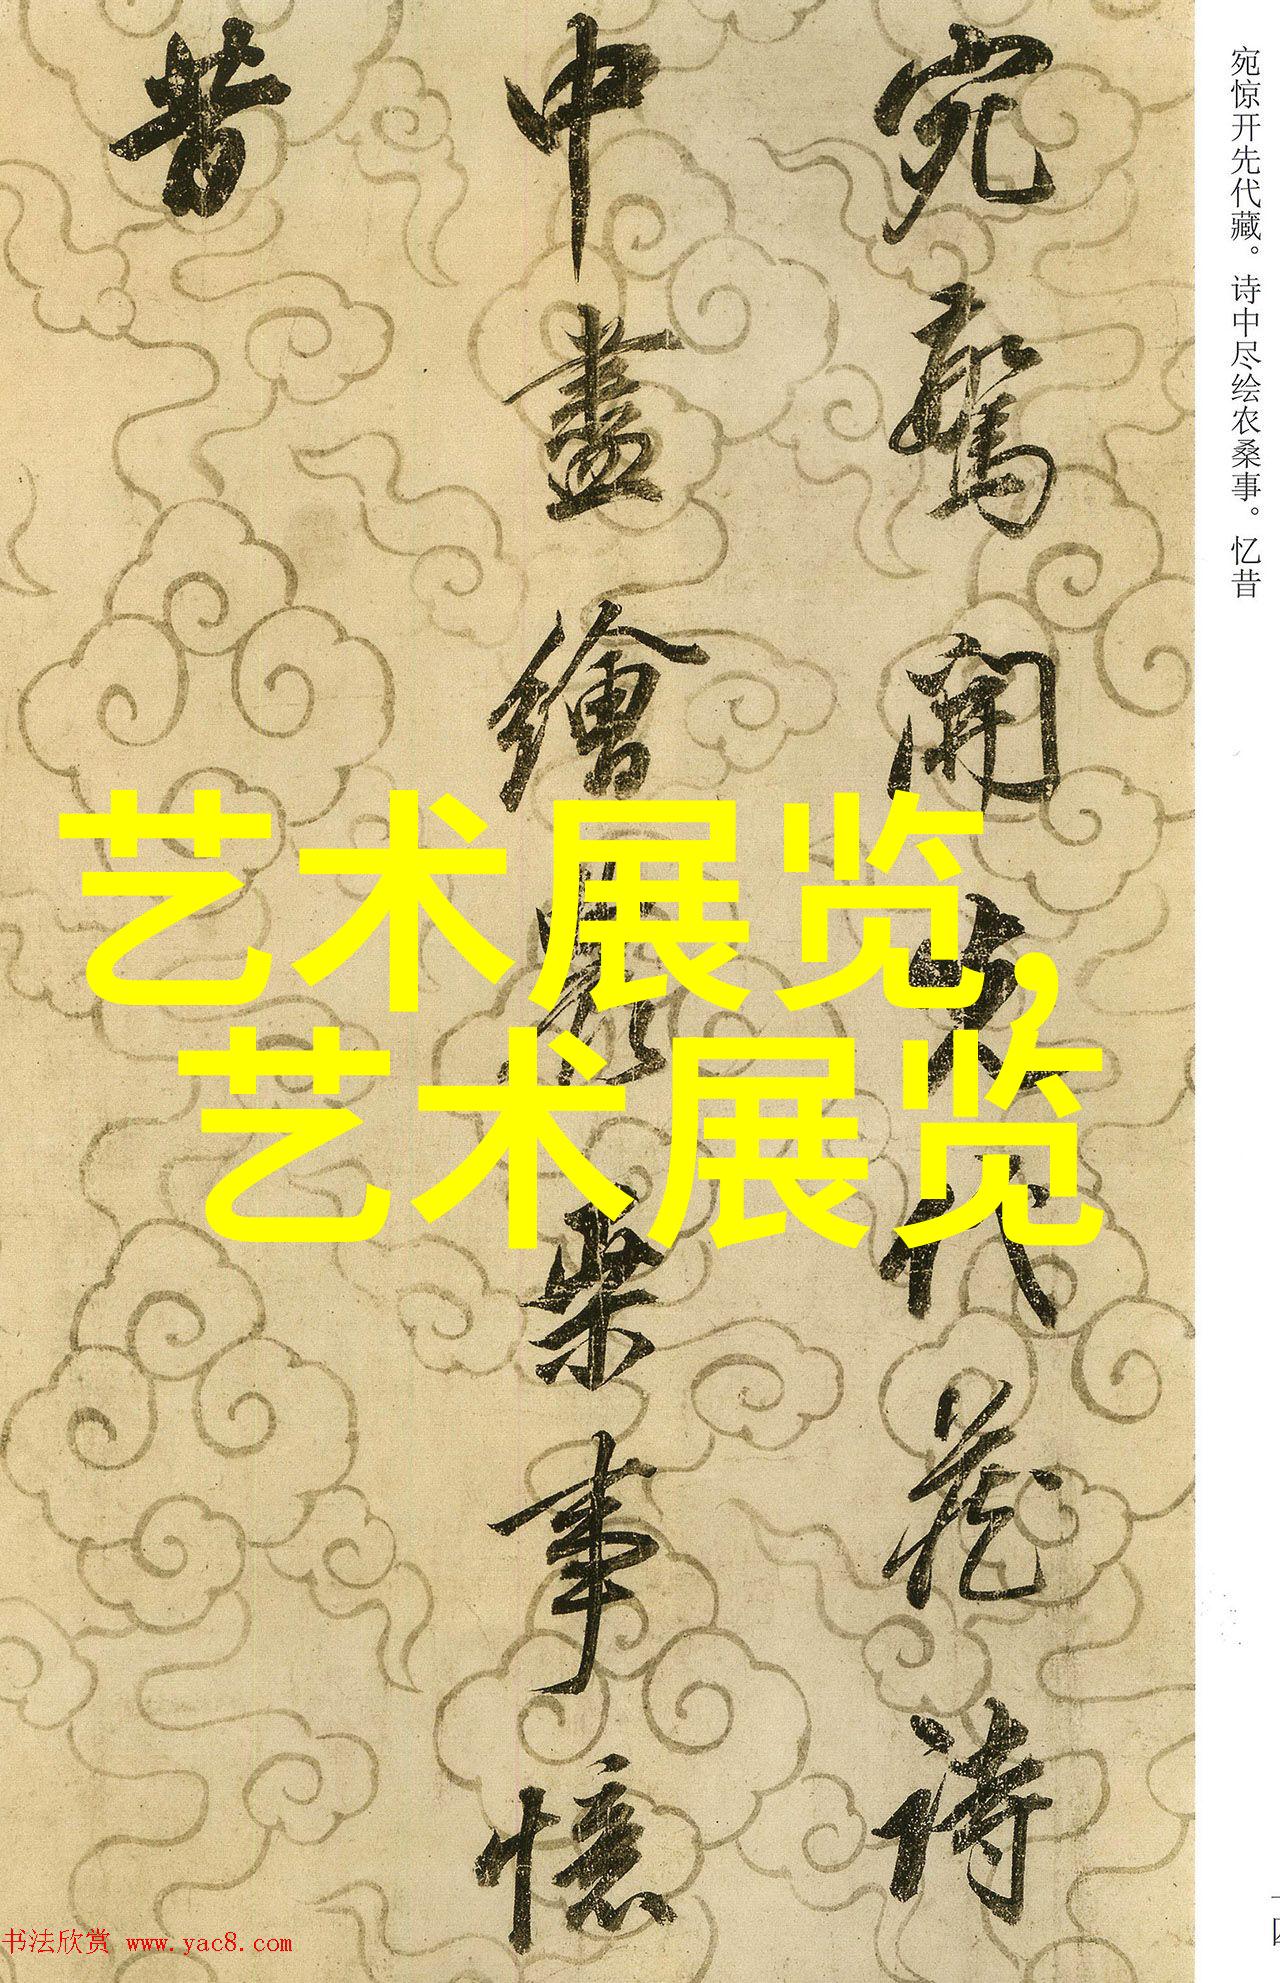 宛驚開先代藏诗
中盡繪農桒事憶
昔
宛惊开先代藏。诗中尽绘农桑事。忆昔
艺术展览,
艺术展览
书法欣赏 www.yac8.com